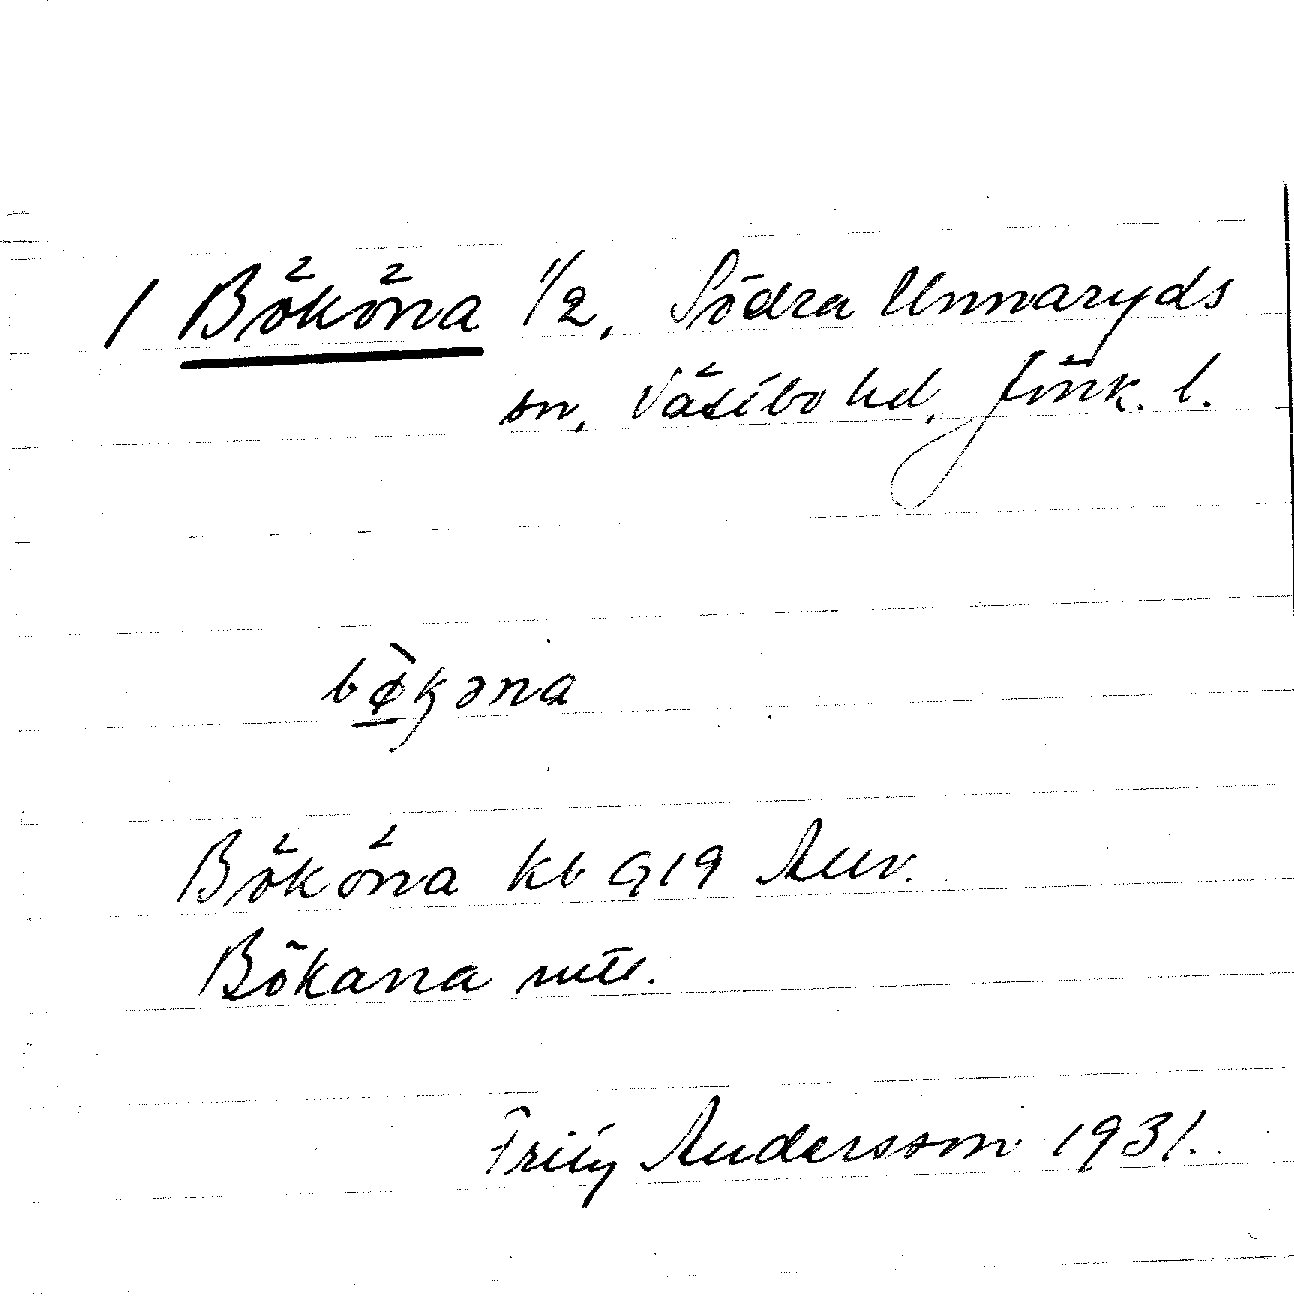 1 Bököna 1/2, Södra Unnaryds
sn, Västbo hd, Jönk. l.
bø̀kəna
Bököna kb G19 Auv.
Bökana mtl.
Frity Andersson 1931.